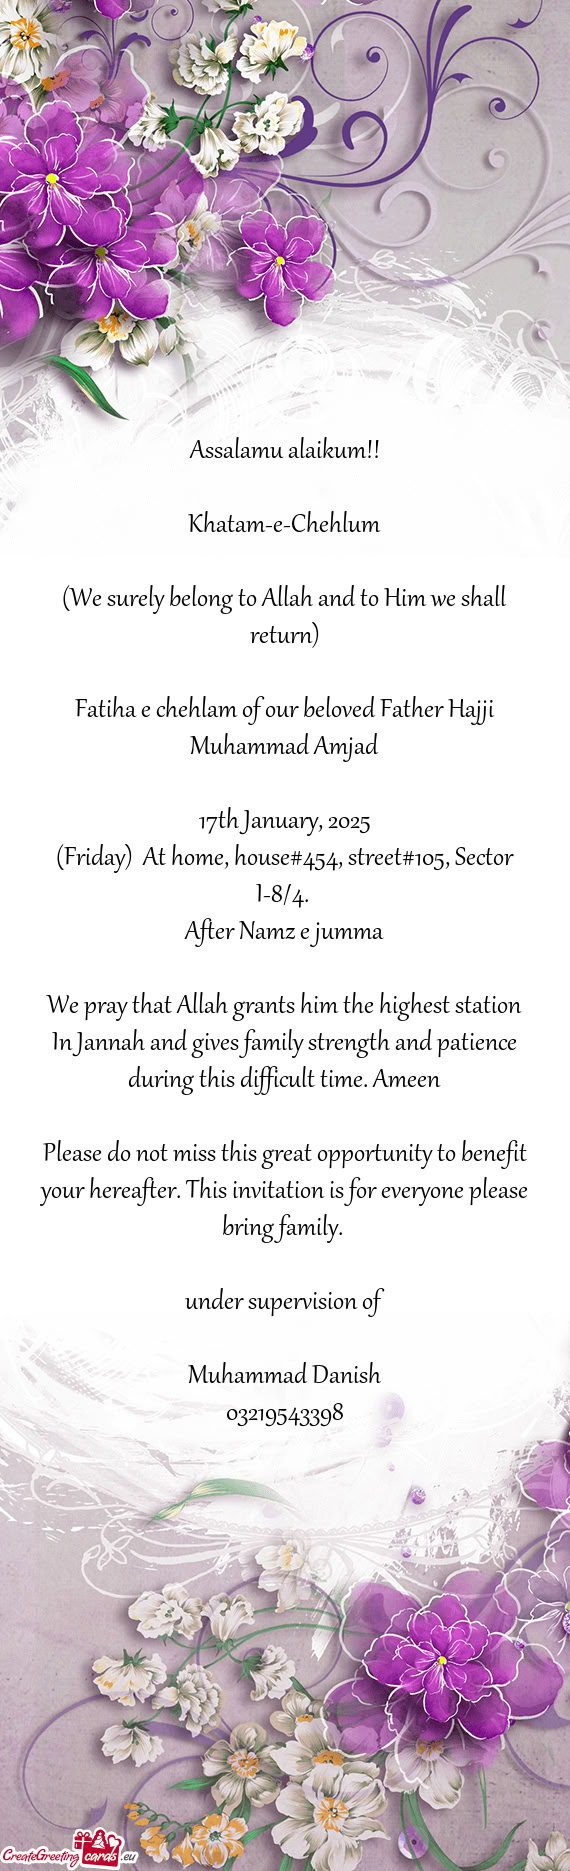 Assalamu alaikum!!
Khatam-e-Chehlum
(We surely belong to Allah and to Him we shall
return)
Fatiha e chehlam of our beloved Father Hajji
Muhammad Amjad
17th January, 2025
(Friday) At home, house#454, street#105, Sector
I-8/4.
After Namz e jumma
We pray that Allah grants him the highest station
In Jannah and gives family strength and patience
during this difficult time. Ameen
Please do not miss this great opportunity to benefit
your hereafter. This invitation is for everyone please
bring family.
under supervision of
Muhammad Danish
03219543398
CreateGreeting cards .eu